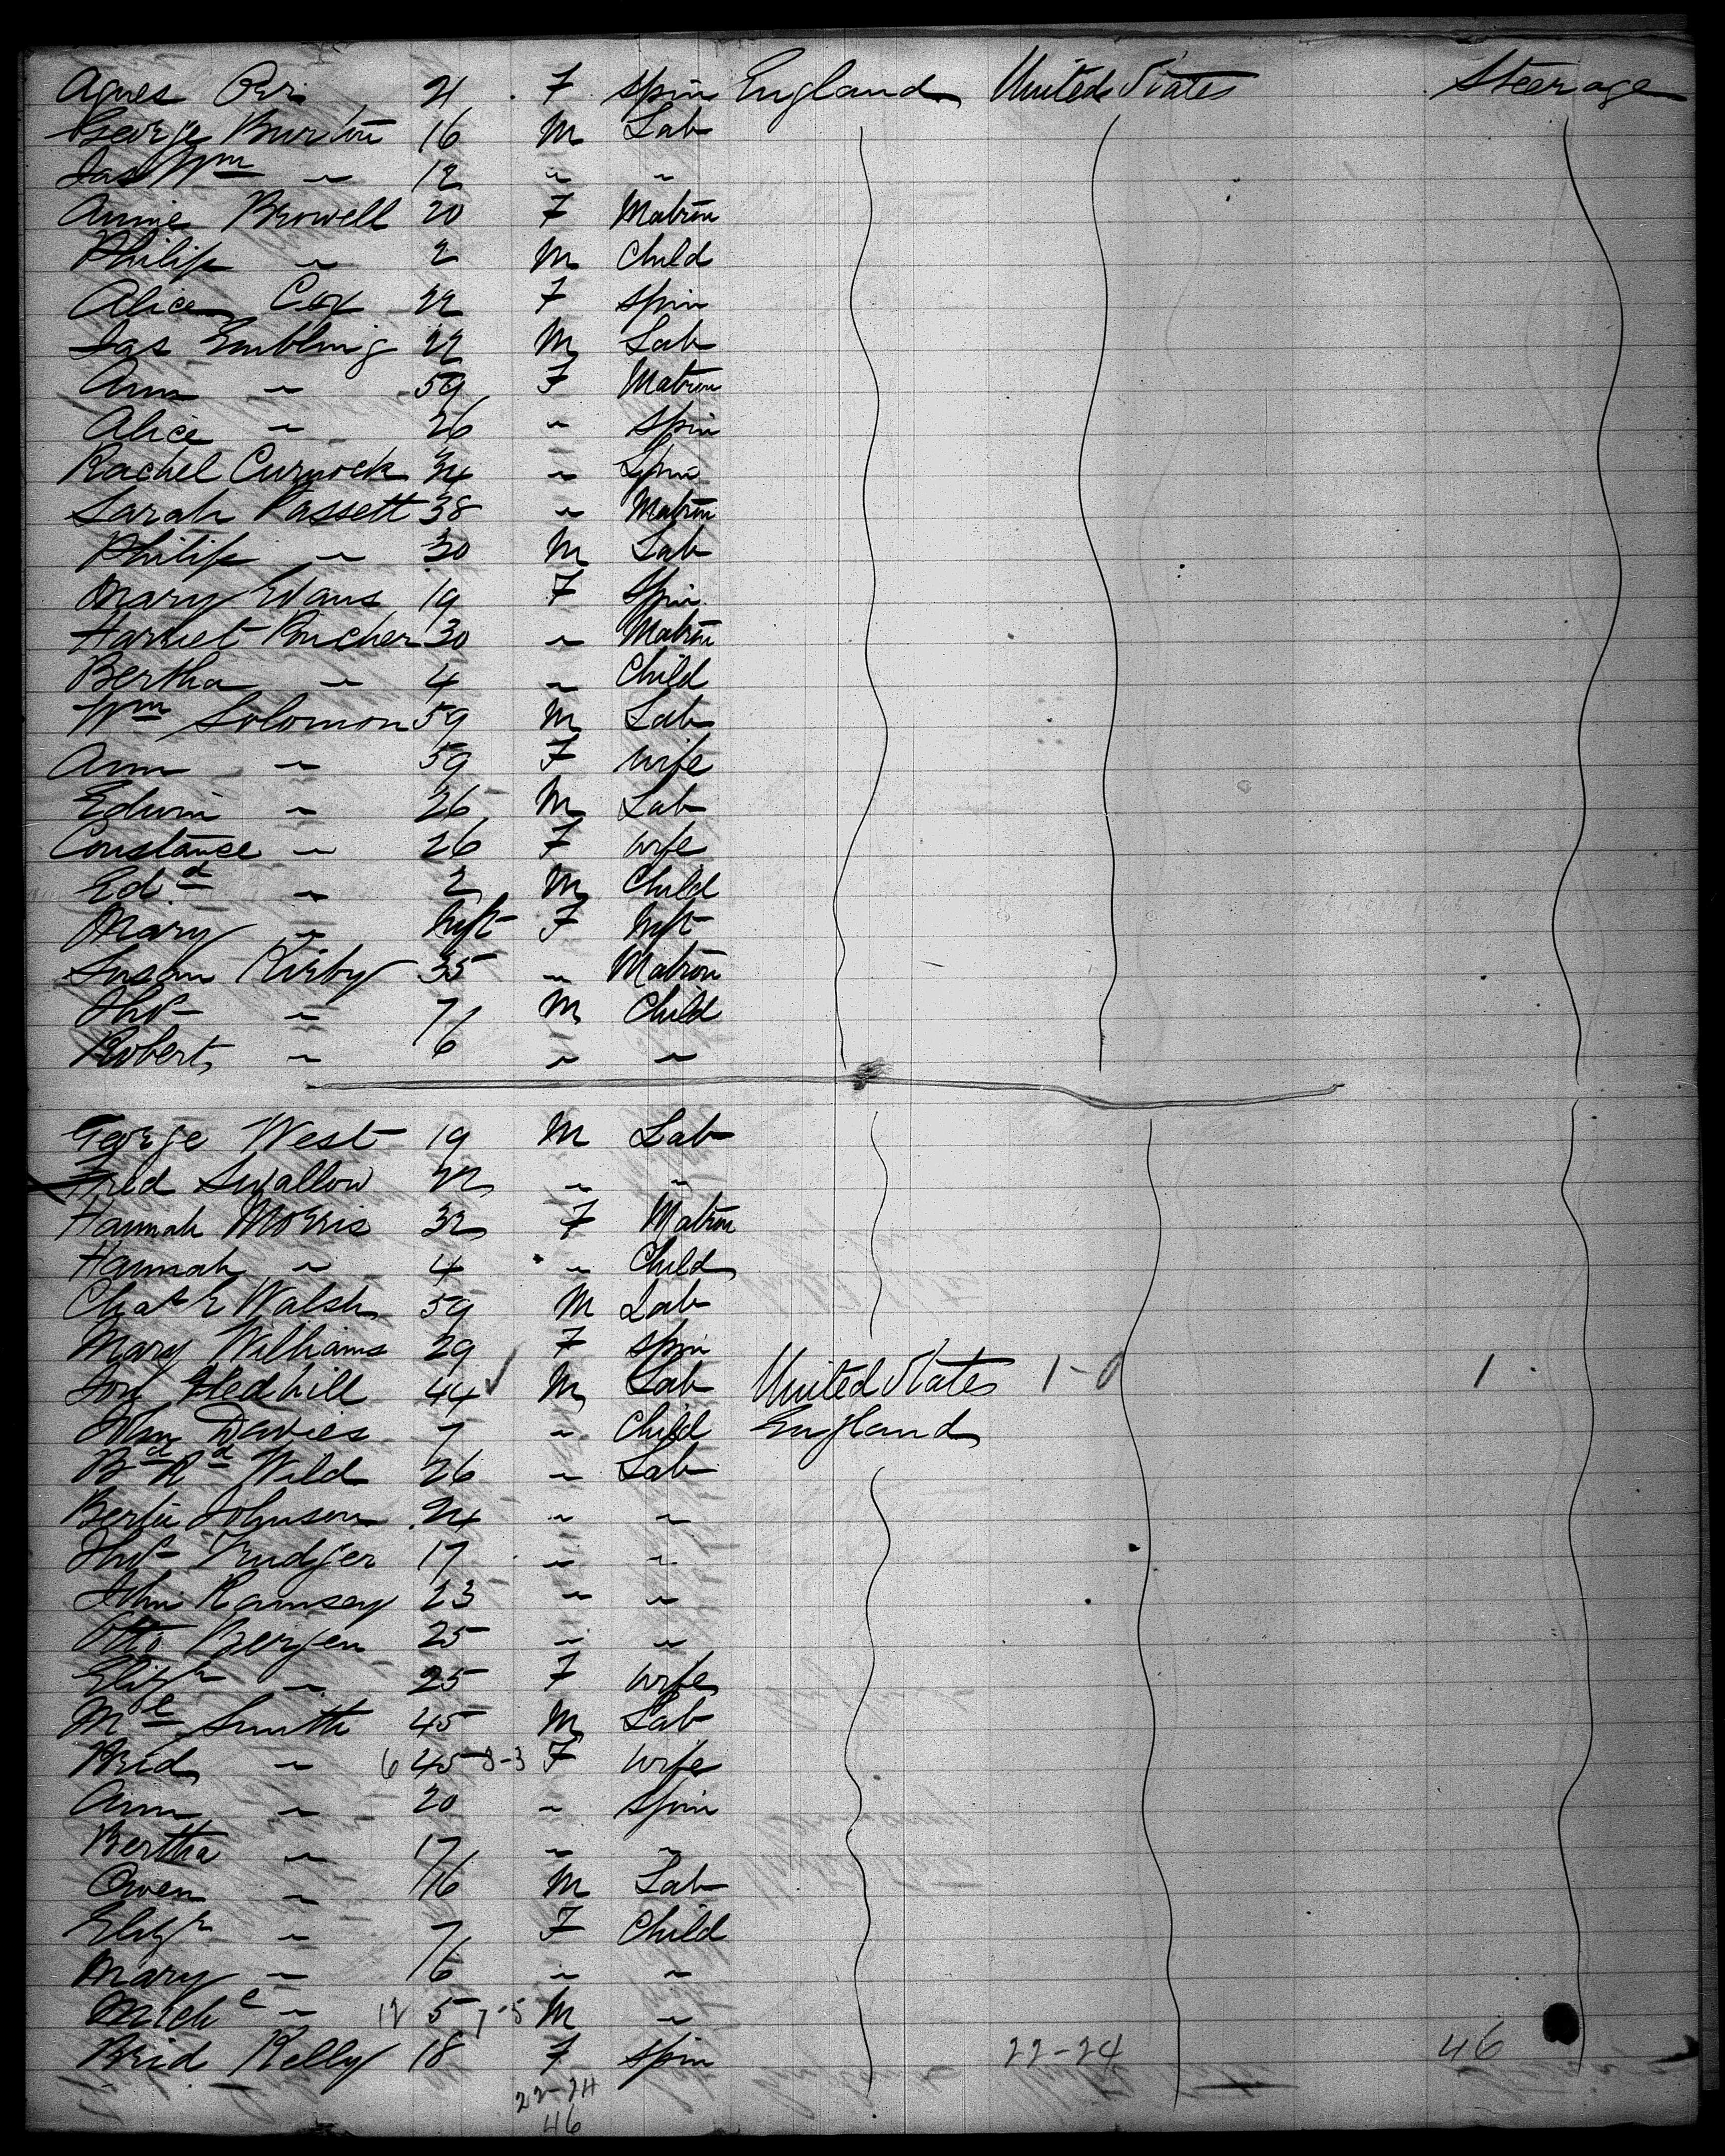 Agnes Orr 21 F Spin England United States Steerage
George Burston 16 M Lab
Jas Wm " 12 " "
Annie Browell 20 F Matron
Philip " 2 M Child
Alice Cox 22 F Spin
Jas Embling 22 M Lab
Ann " 59 F Matron
Alice " 26 " Spin
Rachel Curnock 34 " Spin
Sarah Bassett 38 " Matron
Philip " 30 M Lab
Mary Evans 19 F Spin
Harriet 30 " Matron
Bertha " 4 " Child
Wm Solomon 59 M Lab
Ann " 59 F Wife
Edwin " 26 M Lab
Constance " 26 F Wife
Edd " 2 M Child
Mary " Inft F Inft
Susan Kirby 35 " Matron
Thos " 7 M Child
Robert " 6 " "
George West 19 M Lab
Fred Swallow 22 " "
Hannah Morris 32 F Matron
Hannah " 4 " Child
Chas E Walsh 59 M Lab
Mary Williams 29 F Spin
44 M Lab United States 1-0 1
John Davies 7 " Child England
Bd Rd Wild 26 " Lab
Johnson 24 " "
Thos Trudger 17 " "
John Ramsey 23 " "
Otto Bergen 25 " "
Elizh " 25 F Wife
Ml Smith 45 M Lab
Brid " 6 45 8-3 F Wife
Ann " 20 " Spin
Bertha " 17 " "
Owen " 16 M Lab
Elizh " 7 F Child
Mary " 6 " "
Michl " 12 5 7-5 M "
Brid Kelly 18 F Spin 22-24 46
22-24
46